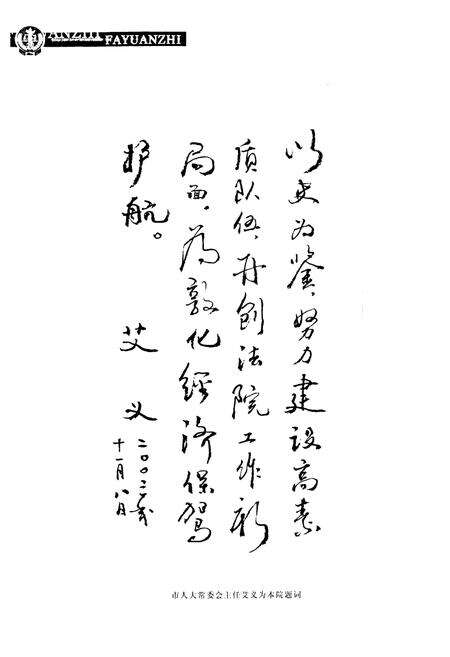 FAYUANZHI
以史为鉴,努力建设高素
质队伍,再创法院工作新
局面。为敦化经济保驾
护航。
艾义
十一月八日
市人大常委会主任艾义为本院题词